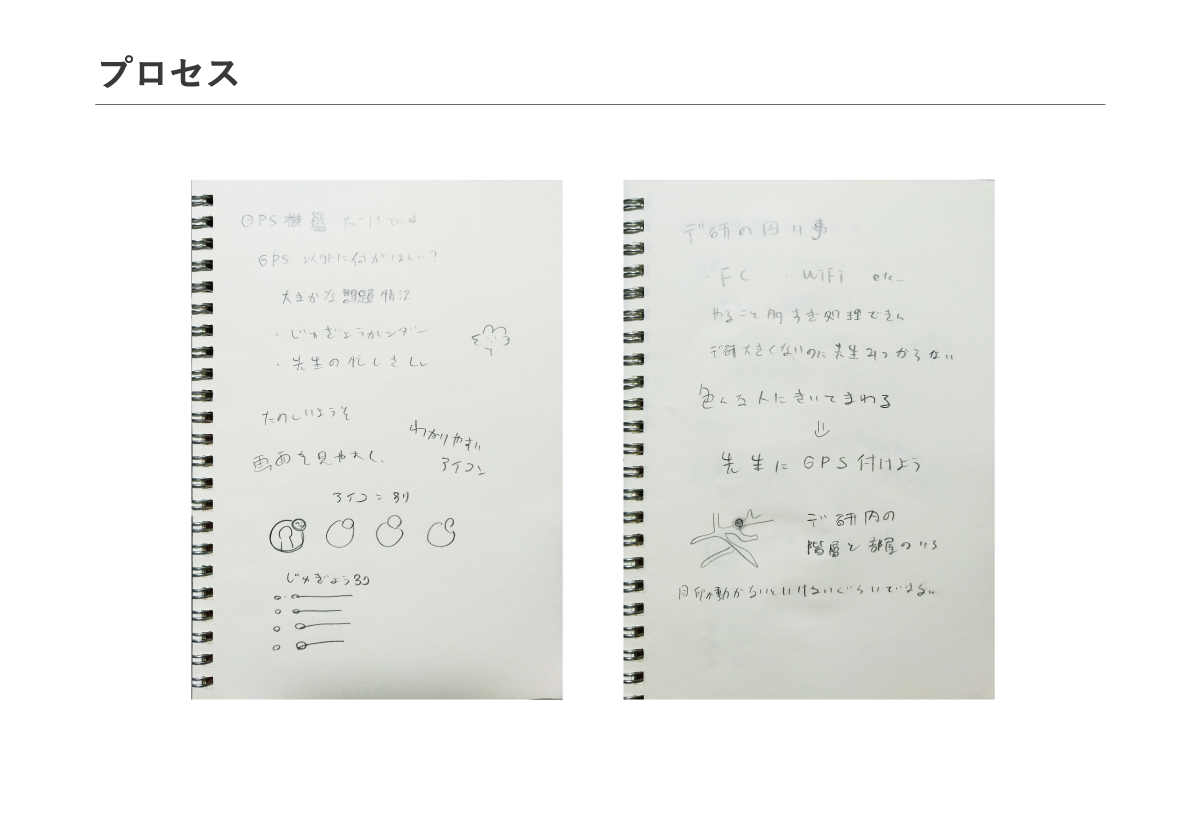 プロセス
GPS機能だけでいい
GPS以外に何がほしい?
・大まかな課題情況
・じゅぎょうカレンダー
・先生の忙しさ
たのしいようそ
わかりやすい
アイコン
画面を見やすく、
アイコン別
じゅぎょう別
デ研の困り事
・FC ・WiFi etc..
やること多すぎ処理できん
デ研大きくないのに先生みつからない
色んな人にきいてまわる
先生にGPS付けよう
デ研内の
階層と部屋の